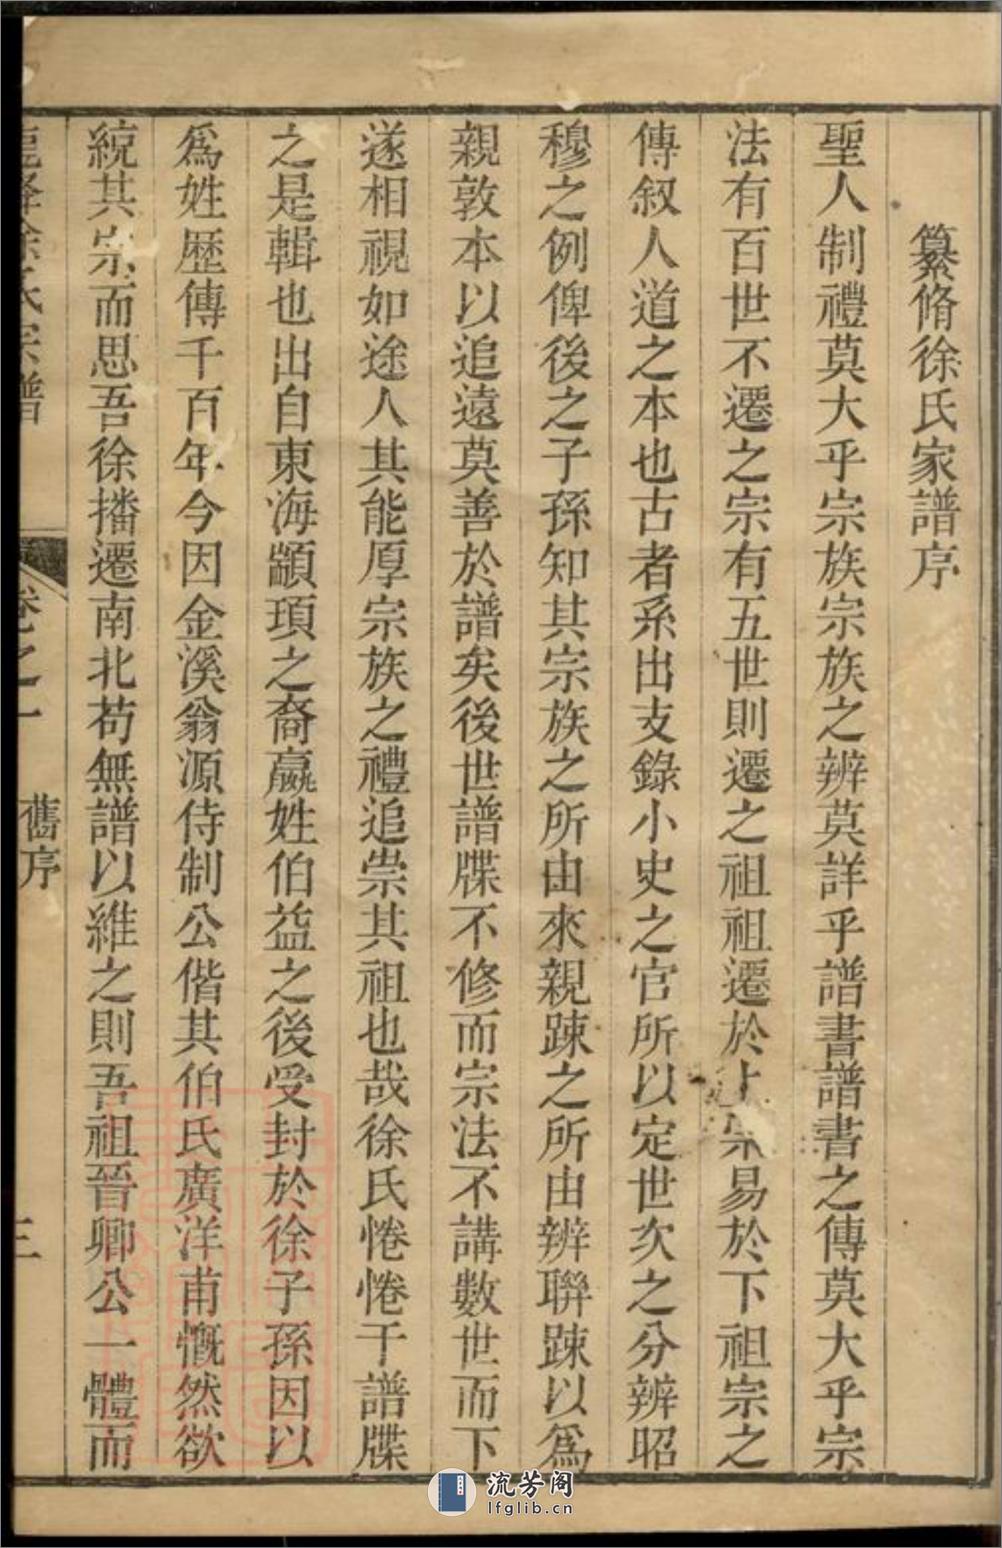 纂脩徐氏家譜序
聖人制禮莫大乎宗族宗族之辨莫詳乎譜書譜書之傳莫大乎宗
法有百世不遷之宗有五世則遷之祖祖遷於上宗易於下祖宗之
傳叙人道之本也古者系出支錄小史之官所以定世次之分辨昭
穆之例俾後之子孫知其宗族之所由來親踈之所由辨聯踈以爲
親敦本以追遠莫善於譜矣後世譜牒不修而宗法不講數世而下
遂相視如途人其能厚宗族之禮追崇其祖也哉徐氏惓惓于譜牒
之是輯也出自東海顓頊之裔嬴姓伯益之後受封於徐子孫因以
爲姓歷傳千百年今因金溪翁源侍制公偕其伯氏廣洋甫慨然欲
統其宗而思吾徐播遷南北苟無譜以維之則吾祖晉卿公一體而
徐氏宗譜
卷之一
舊序
三
流芳阁
lfglib.cn